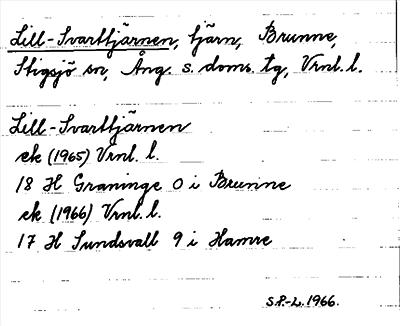 Lill-Svarttjärnen, tjärn, Brunne,
Stigsjö sn, Ång. s. doms. tg, Vrnl. l.
Lill-Svarttjärnen
ek (1965) Vrnl. l.
18 H Graninge 0 i Brunne
ek (1966) Vrnl. l.
17 H Sundsvall 9 i Hamre
S.P.-L. 1966.